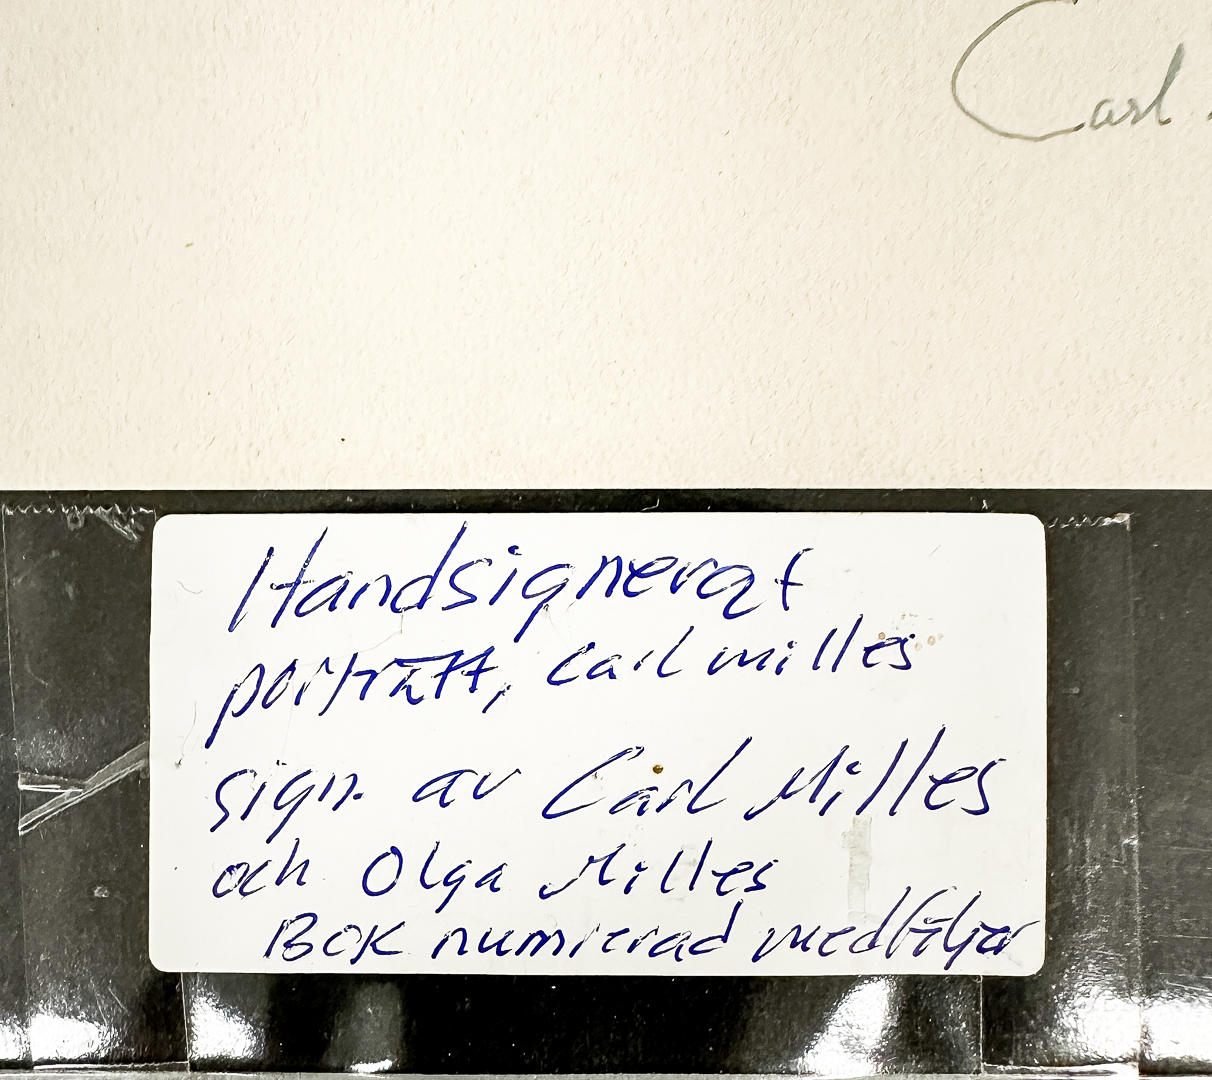 Carl
Handsignerat
porträtt, Carl milles
sign. av Carl Milles
och Olga Milles
BOK numrerad medföljer